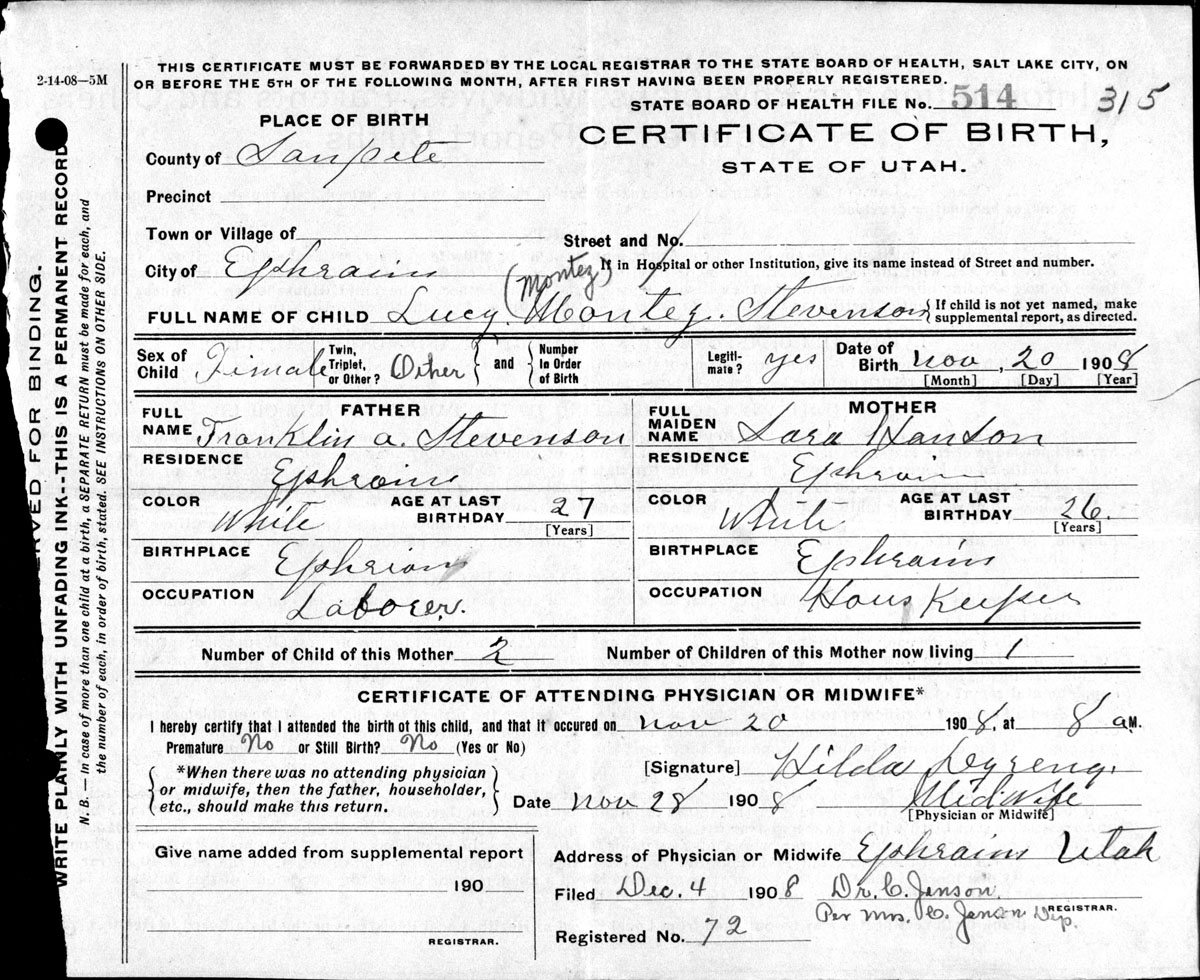 2-14-08—5M
THIS CERTIFICATE MUST BE FORWARDED BY THE LOCAL REGISTRAR TO THE STATE BOARD OF HEALTH, SALT LAKE CITY, ON
OR BEFORE THE 5TH OF THE FOLLOWING MONTH, AFTER FIRST HAVING BEEN PROPERLY REGISTERED.
STATE BOARD OF HEALTH FILE No. 514 315
PLACE OF BIRTH
CERTIFICATE OF BIRTH,
STATE OF UTAH.
County of Sanpete
Precinct
Town or Village of
Street and No.
City of Ephraim
If in Hospital or other Institution, give its name instead of Street and number.
(Montez)
FULL NAME OF CHILD Lucy Montez Stevenson { If child is not yet named, make supplemental report, as directed.
Sex of Child Fimale Twin, Triplet, or Other? Other } and { Number in Order of Birth
Legitimate? yes
Date of Birth Nov, 20 1908
[Month] [Day] [Year]
FATHER
FULL NAME Franklin A. Stevenson
RESIDENCE Ephraim
COLOR White AGE AT LAST BIRTHDAY 27
[Years]
BIRTHPLACE Ephriam
OCCUPATION Laborer.
MOTHER
FULL MAIDEN NAME Sara Hanson
RESIDENCE Ephraim
COLOR White AGE AT LAST BIRTHDAY 26
[Years]
BIRTHPLACE Ephraim
OCCUPATION Hous Keeper
Number of Child of this Mother 2 Number of Children of this Mother now living 1
CERTIFICATE OF ATTENDING PHYSICIAN OR MIDWIFE*
I hereby certify that I attended the birth of this child, and that it occured on Nov 20 1908, at 8 a M.
Premature No or Still Birth? No (Yes or No)
{ *When there was no attending physician
or midwife, then the father, householder,
etc., should make this return. }
[Signature] Hilda Dyreng.
Date Nov 28 1908 Midwife
[Physician or Midwife]
Give name added from supplemental report
190
REGISTRAR.
Address of Physician or Midwife Ephraim Utah
Filed Dec. 4 1908 Dr. C. Jenson.
Per Mrs. C. Jenson Dep. REGISTRAR.
Registered No. 72
RVED FOR BINDING.
WRITE PLAINLY WITH UNFADING INK--THIS IS A PERMANENT RECORD
N. B. — In case of more than one child at a birth, a SEPARATE RETURN must be made for each, and
the number of each, in order of birth, stated. SEE INSTRUCTIONS ON OTHER SIDE.